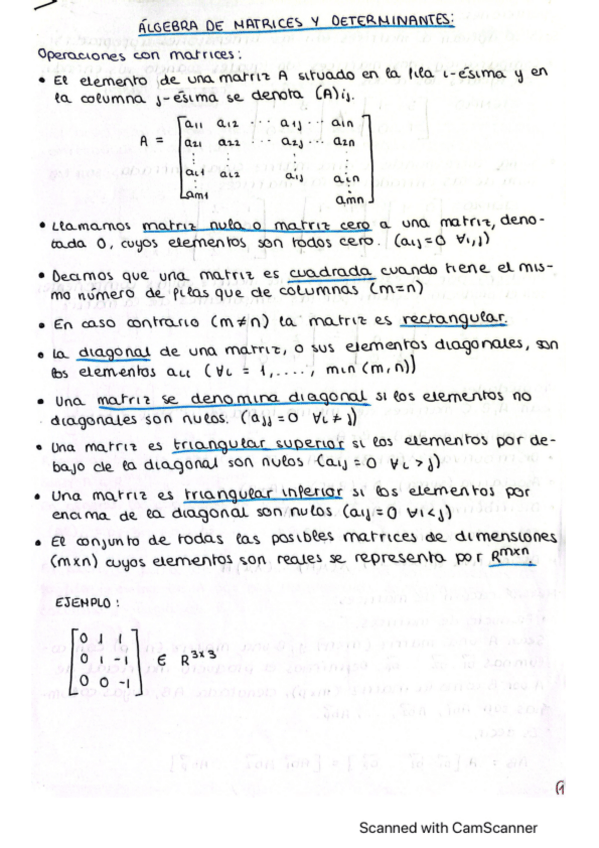 ÁLGEBRA DE MATRICES Y DETERMINANTES:
Operaciones con matrices:
• El elemento de una matriz A situado en la fila i-ésima y en
la columna j-ésima se denota (A)ij.
A = [a11 a12 ... a1j ... a1n
a21 a22 ... a2j ... a2n
⋮ ⋮ ⋮ ⋮
ai1 ai2 aij ain
am1 amn]
• Llamamos matriz nula o matriz cero a una matriz, deno-
tada 0, cuyos elementos son todos cero. (aij=0 ∀i,j)
• Decimos que una matriz es cuadrada cuando tiene el mis-
mo número de filas que de columnas (m=n)
• En caso contrario (m≠n) la matriz es rectangular.
• La diagonal de una matriz, o sus elementos diagonales, son
los elementos aii (∀i = 1,...., min(m,n))
• Una matriz se denomina diagonal si los elementos no
diagonales son nulos. (aij=0 ∀i≠j)
• Una matriz es triangular superior si los elementos por de-
bajo de la diagonal son nulos (aij=0 ∀i>j)
• Una matriz es triangular inferior si los elementos por
encima de la diagonal son nulos (aij=0 ∀i<j)
• El conjunto de todas las posibles matrices de dimensiones
(mxn) cuyos elementos son reales se representa por R^mxn.
EJEMPLO:
[0 1 1
0 1 -1
0 0 -1] ∈ R^3x3
1
Scanned with CamScanner